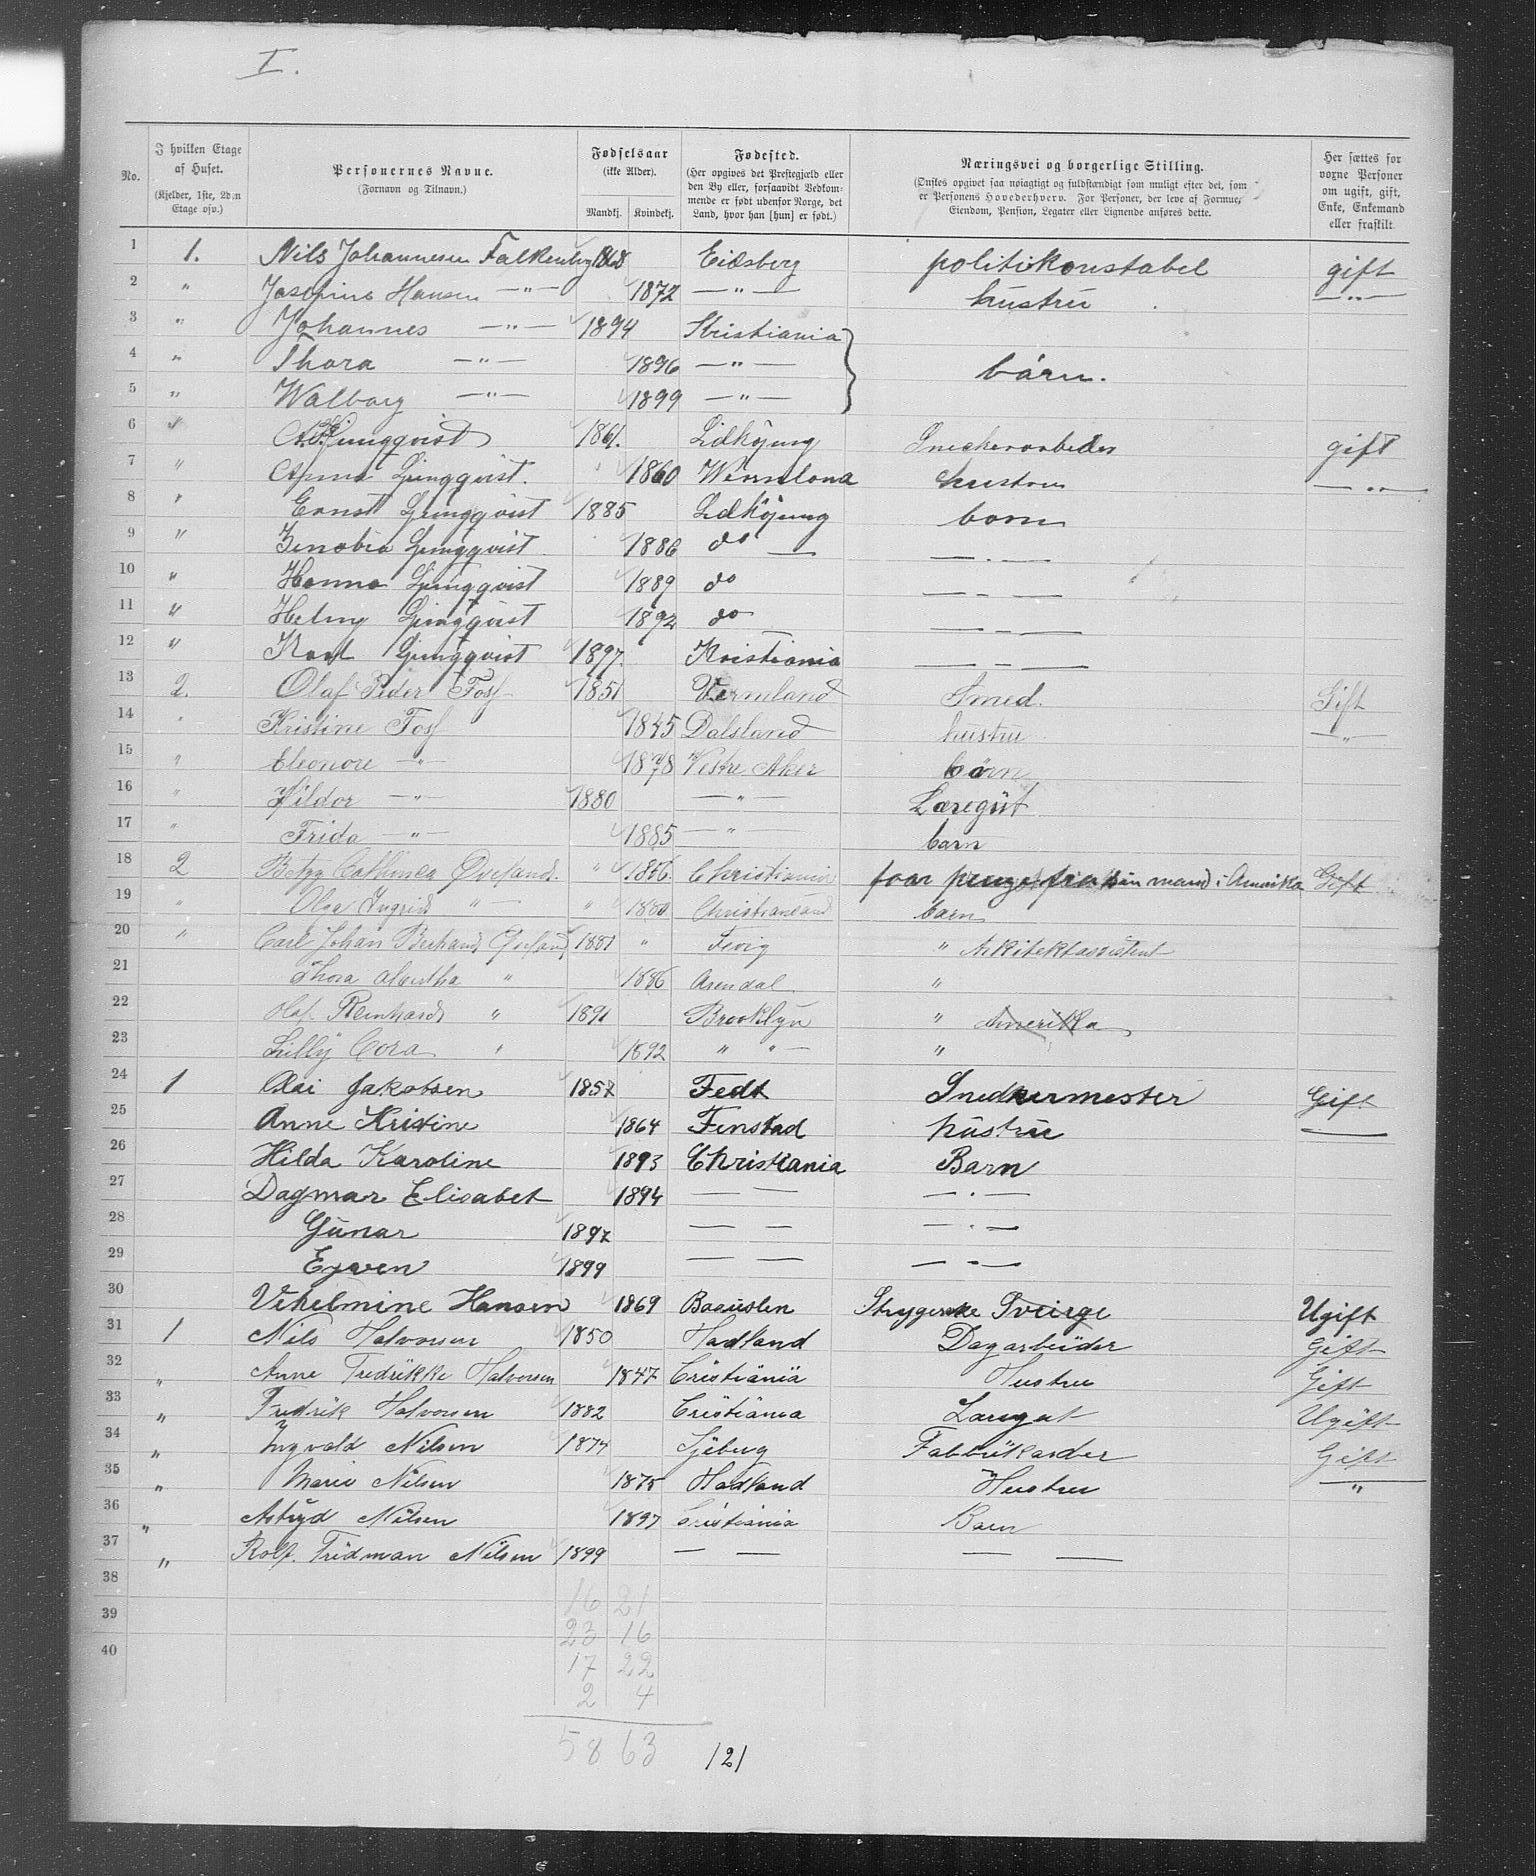 I.
No.
I hvilken Etage af Huset.
(Kjelder, 1ste, 2den Etage osv.)
Personernes Navne.
(Fornavn og Tilnavn.)
Fødselsaar
(ikke Alder).
Mandkj. Kvindekj.
Fødested.
(Her opgives det Prestegjæld eller den By eller, forsaavidt Vedkommende er født udenfor Norge, det Land, hvor han [hun] er født.)
Næringsvei og borgerlige Stilling.
(Ønskes opgivet saa nøiagtigt og fuldstændigt som muligt efter det, som er Personens Hovederhverv. For Personer, der leve af Formue, Eiendom, Pension, Legater eller Lignende anføres dette.
Her sættes for voxne Personer om ugift, gift, Enke, Enkemand eller fraskilt.
1 1. Nils Johannesen Falkenberg 1868 Eidsberg politikonstabel gift
2 " Josefine Hansen —"— 1872 —"— hustru —"—
3 " Johannes —"— 1894 Kristiania
4 " Thora —"— 1896 —"— børn.
5 " Walborg —"— 1899 —"—
6 " Ljungqvist 1861. Lidköping Snedkerarbeder gift
7 " Anna Ljungqvist. " 1860 Wermlona hustru — " —
8 " Ernst Ljungqvist 1885 Lidköping born
9 " Zenobia Ljungqvist 1886 do — — . —
10 " Hanna Ljungqvist 1889 do — - —
11 " Helmy Ljungqvist 1892 do — - —
12 " Karl Ljungqvist 1897. Kristiania — - —
13 2. Olaf Peder Foss 1851 Vermland Smed. Gift
14 " Kristine Foss 1845 Dalsland hustru —"—
15 " Eleonore —"— 1878 Vestre Aker børn
16 " Hildor —"— 1880 —"— Læregut
17 " Frida —"— 1885 —"— barn
18 2 Betzy Cathinca Øveland " 1856 Christiania faar penge fra sin mand i Amerika Gift
19 " Olga Ingrid " " 1880 Christiansand barn
20 " Carl Johan Bertrand Øveland 1881 " Fevig " Arkitektassistent
21 Thora Alvertha " 1886 Arendal "
22 Olaf Reinhard " 1891 Brooklyn " Amerika
23 Lilly Cora " 1892 " " — "
24 1 Axi Jakobsen 1857 Fedt Snedkermester Gift
25 Anne Kristine 1864 Fenstad hustru —
26 Hilda Karoline 1893 Christiania Barn
27 Dagmar Elisabet 1894 — — — . —
28 Gunar 1897 — — — . —
29 Ejven 1899 — — — . —
30 Vihelmine Hansen 1869 Baauslen Strygerske Sveirge Ugift
31 1 Nils Halvorsen 1850 Hadland Dagarbeider Gift
32 " Anne Fredrikke Halvorsen 1847 Cristiania Hustru Gift
33 " Fredrik Halvorsen 1882 Cristiania Laregut Ugift
34 " Ingvald Nilsen 1874 Sjeberg Fabbrikarder Gift
35 " Marie Nilsen 1875 Hadland Hustru "
36 " Astryd Nilsen 1897 Cristiania Barn
37 " Rolf. Fridman Nilsen 1899 — — — —
38
39
40
16 21
23 16
17 22
2 4
58 63 121